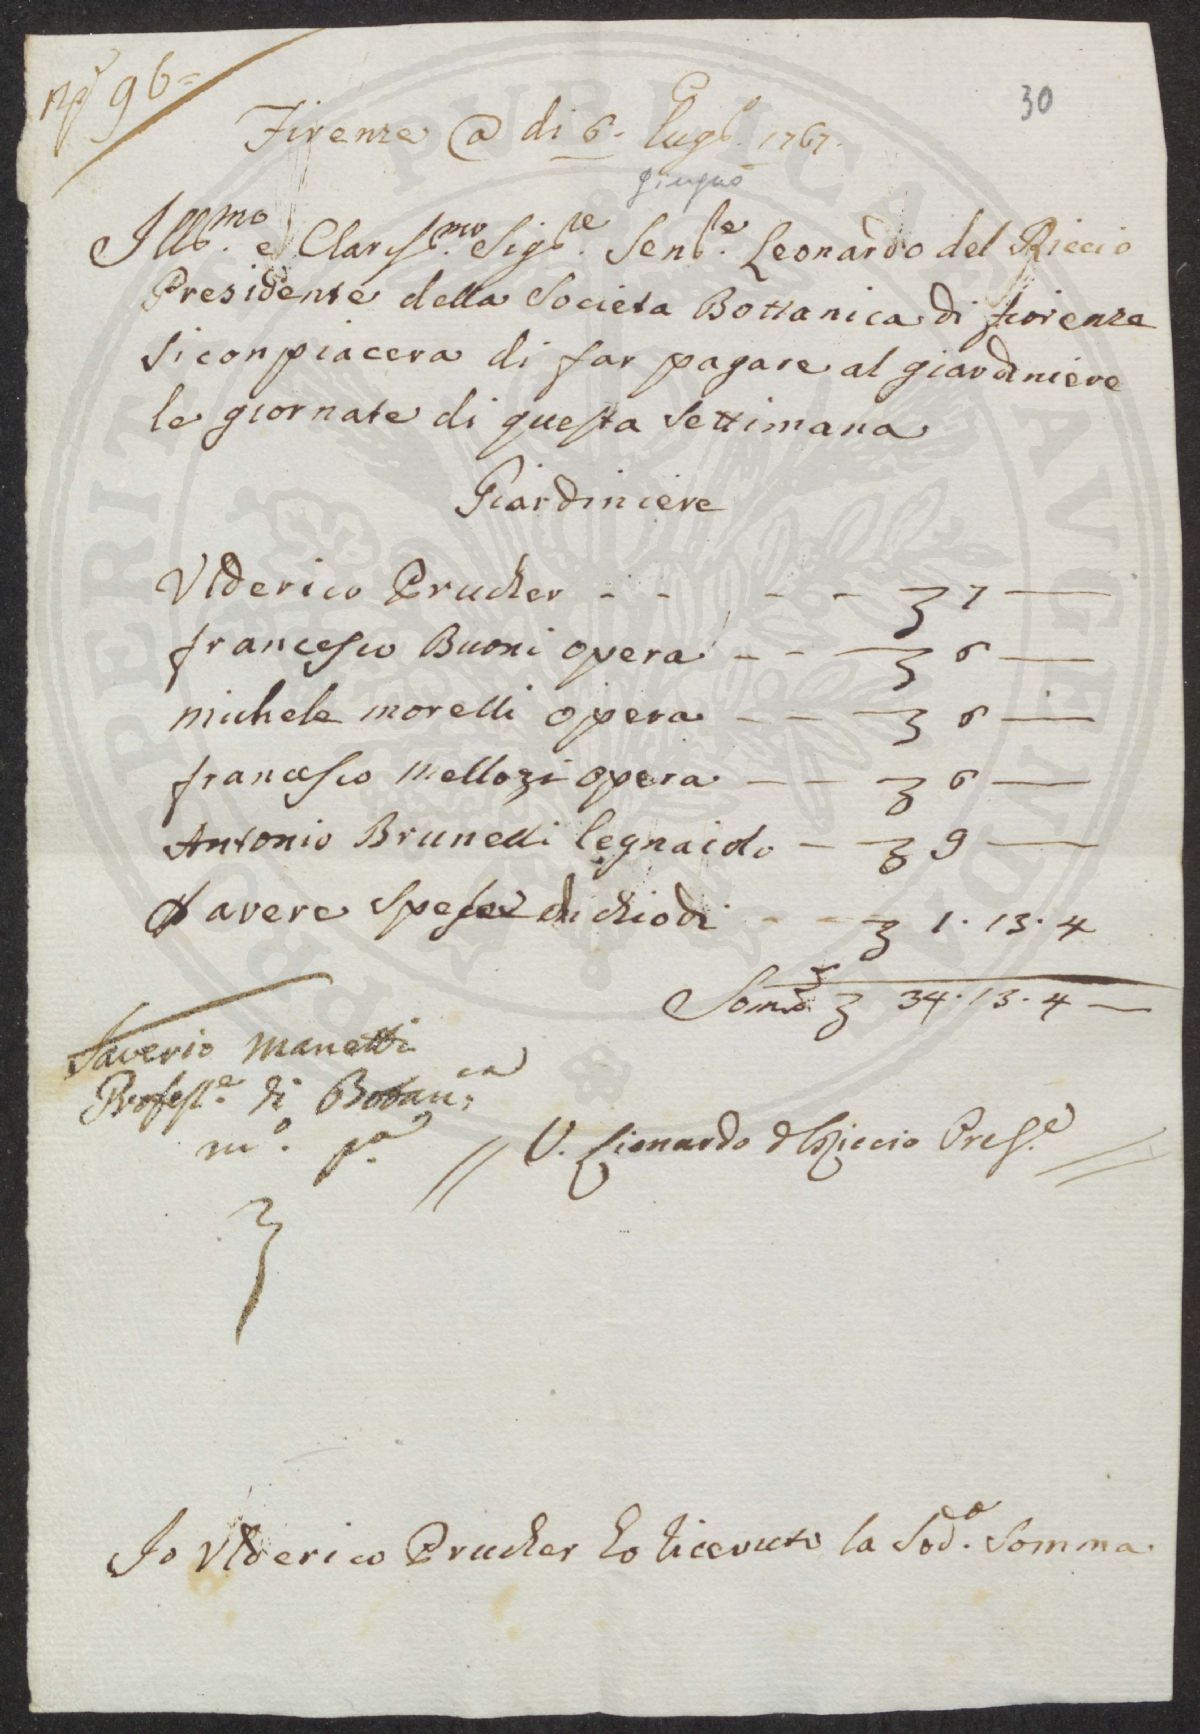 N.º 96=
30
Firenze @ di 6. Lugl.º 1767.
giugno
Ill.mo e Clariss.mo Sig.re Sen.re Leonardo del Riccio
Presidente della Societa Bottanica di fiorenza
si conpiacera di far pagare al giardiniere
le giornate di questa settimana
Giardiniere
Ulderico Prucker - - - - 7 —
francesco Buoni opera - - 6 —
michele morelli opera - - 6 —
francesco mellozi opera - - 6 —
Antonio Brunelli legnaiolo - 9 —
d avere spese di chiodi - - 1. 13. 4
Somª 34. 13. 4 —
Saverio Manetti
Profess.e di Botan.ca
m.º p.ª
// V. Lionardo del Riccio Pres.e //
Io Ulderico Prucker ho ricevuto la Sod.ª Somma.